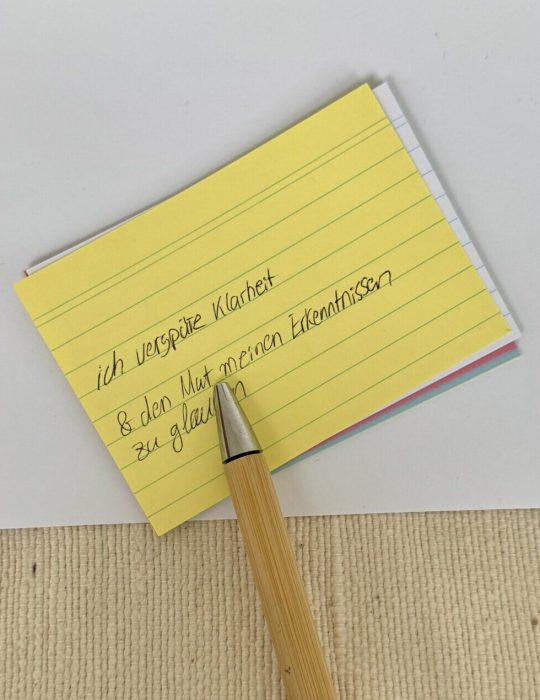 ich verspüre Klarheit
& den Mut meinen Erkenntnissen
zu glauben